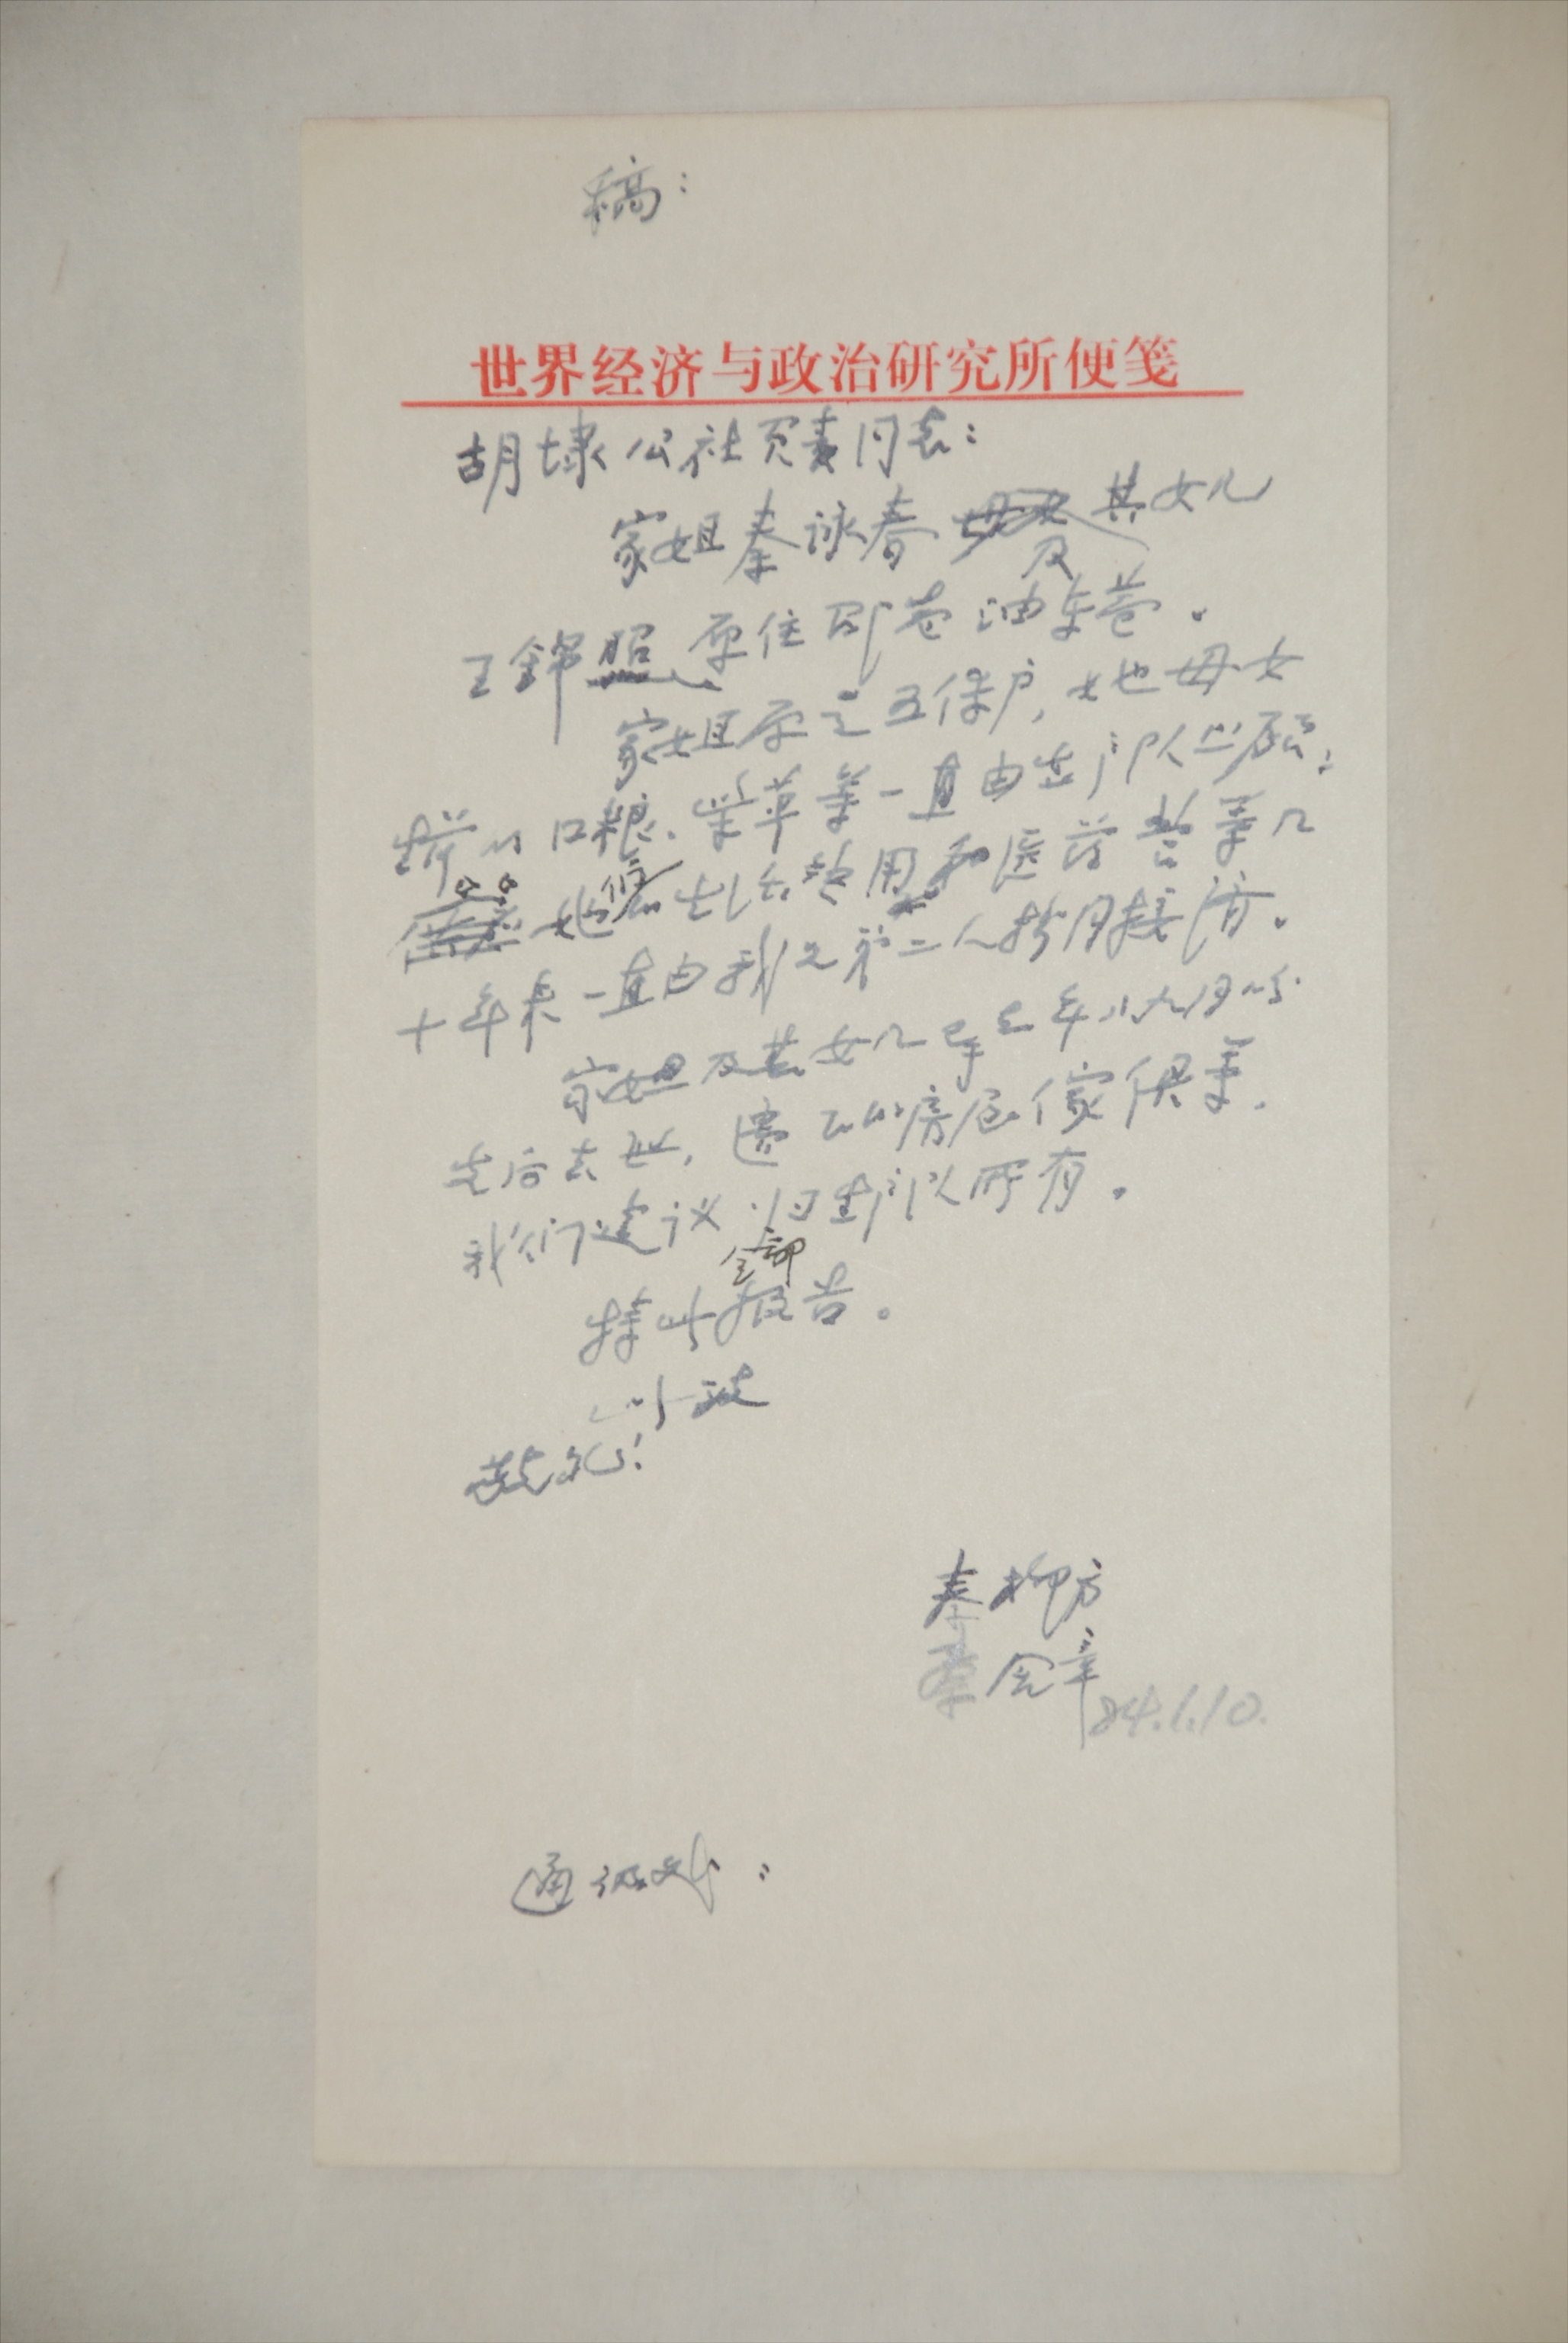 稿：
世界经济与政治研究所便笺
胡埭公社负责同志：
家姐秦泳春及其女儿
王锦照，原住邵巷油车巷。
家姐原是五保户，她母女
口粮、柴草等一直由生产队照顾；
她们的生活费用和医药费等几
十年来一直由我兄弟二人按月接济。
家姐及其女儿已于去年八九月份
先后去世，遗下的房屋傢俱等，
我们建议全部归生产队所有。
特此报告。
此致
敬礼！
秦柳方
秦含章
84.1.10.
通讯处：